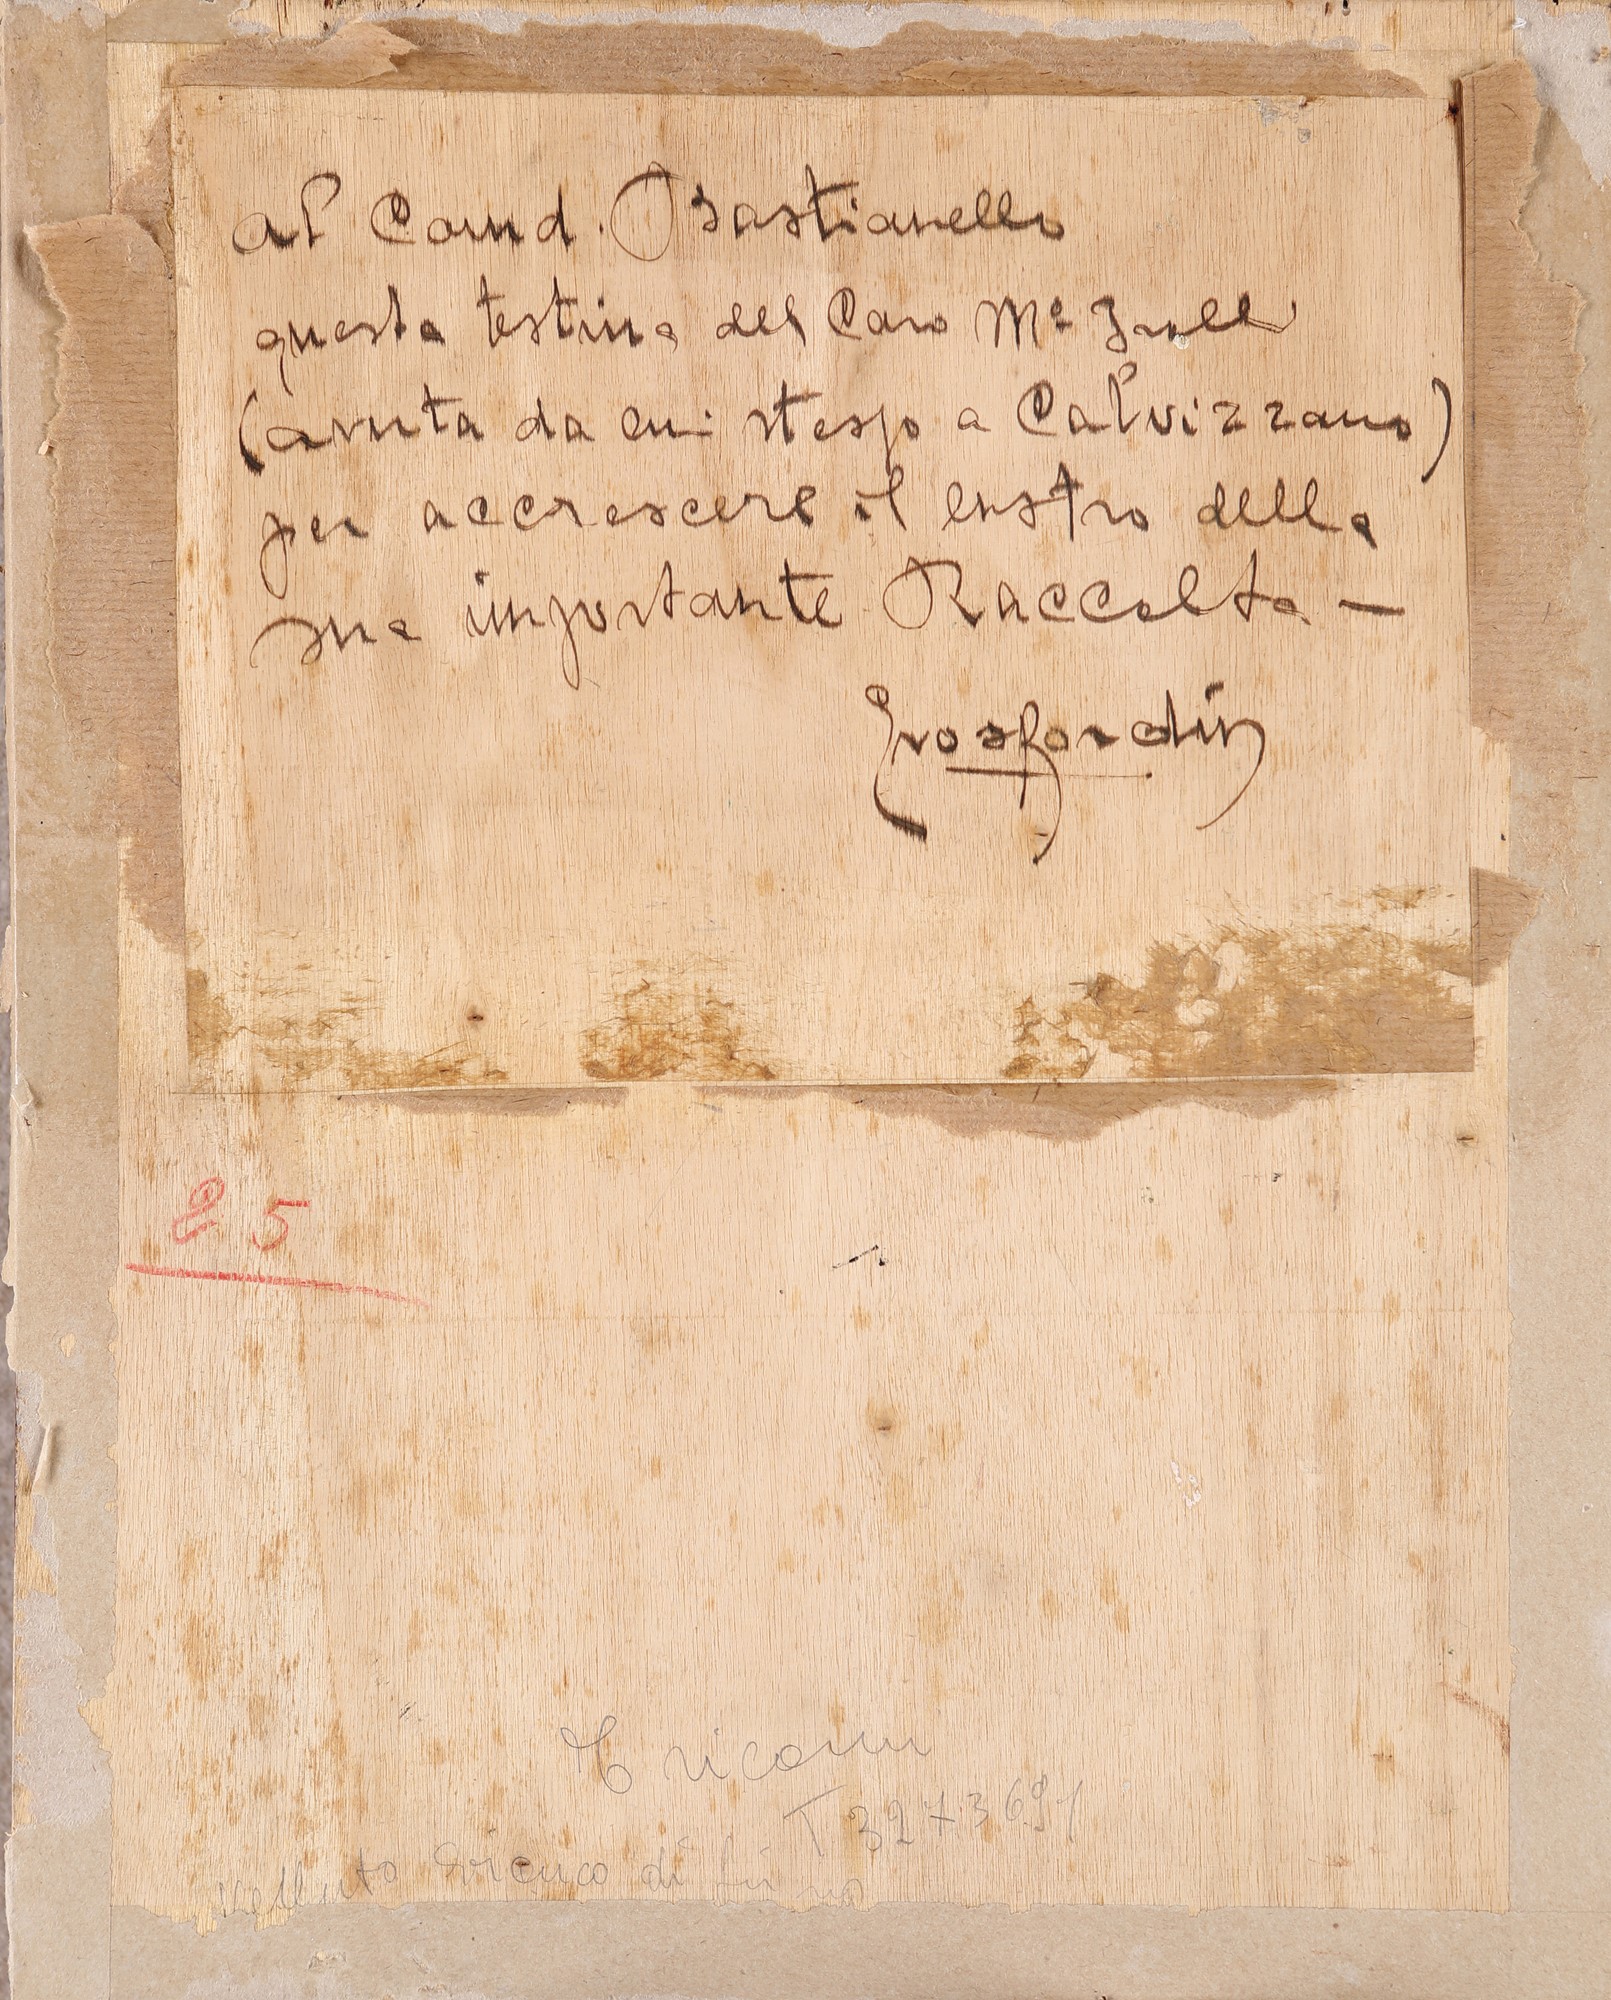 al Comd. Bastianello
questa testina del Caro M° Irolli
(avuta da lui stesso a Calvizzano)
per accrescere il lustro della
sua importante Raccolta —
25
T 3273691
Velluto di